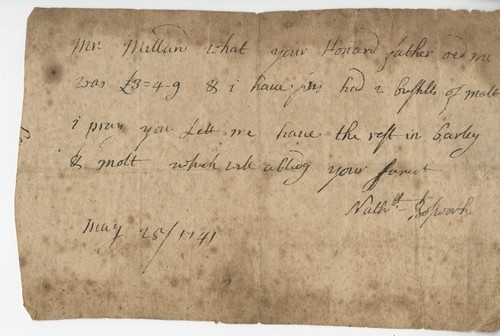 Mr Millard what your Honard father owd me
was £3=4-9 & i have had 2 bushls of malt
i pray you Lett me have the rest in barley
& molt which will abblidg your
Nathll
May 25/1741